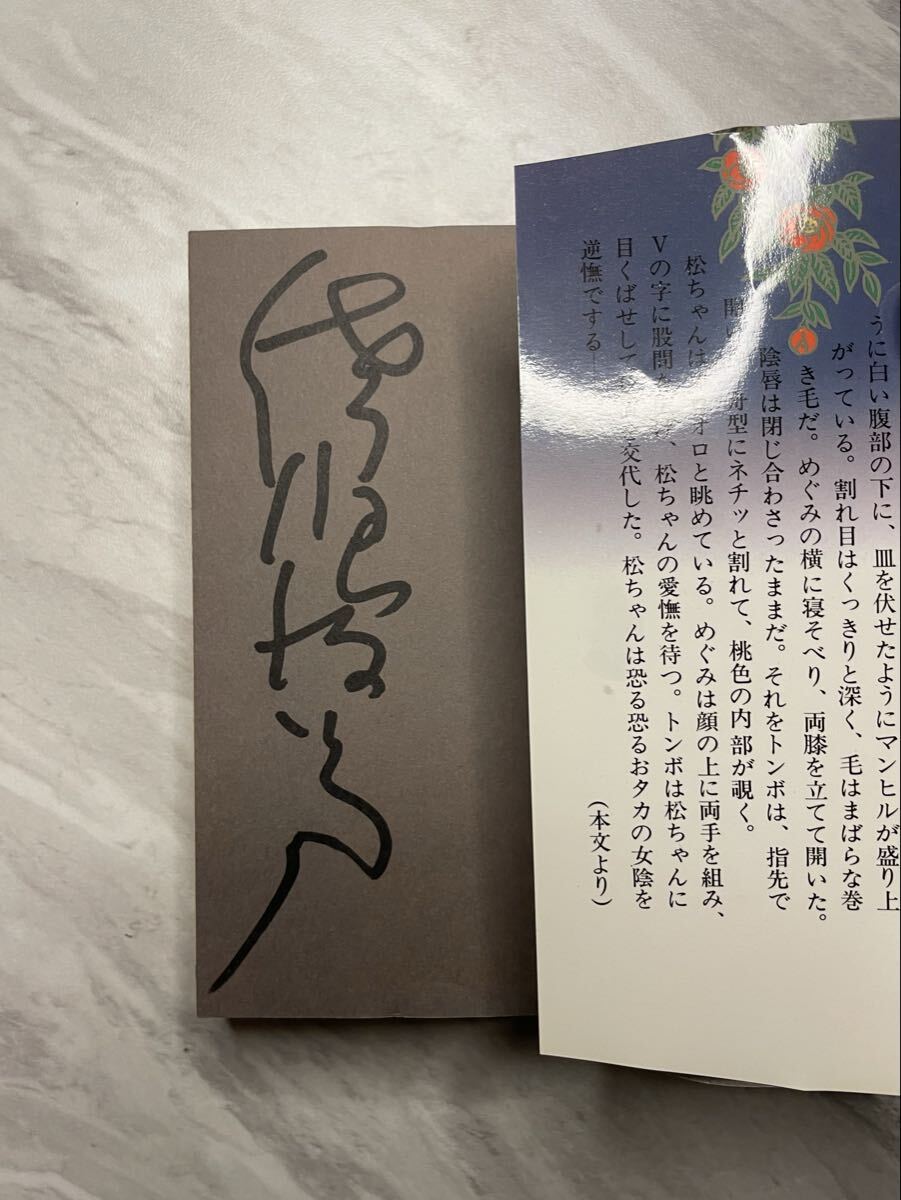 うに白い腹部の下に、皿を伏せたようにマンヒルが盛り上
がっている。割れ目はくっきりと深く、毛はまばらな巻
き毛だ。めぐみの横に寝そべり、両膝を立てて開いた。
陰唇は閉じ合わさったままだ。それをトンボは、指先で
開い 舟型にネチッと割れて、桃色の内部が覗く。
松ちゃんは オロと眺めている。めぐみは顔の上に両手を組み、
Vの字に股間を 、松ちゃんの愛憮を待つ。トンボは松ちゃんに
目くばせして 交代した。松ちゃんは恐る恐るおタカの女陰を
逆憮でする──
(本文より)